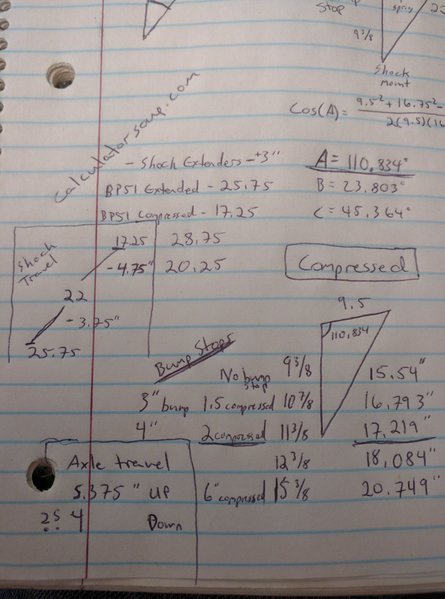 Stop
9 3/8
Shock
mount
Cos(A) = 9.5² + 16.75² -
2(9.5)(16
calculatorsoup.com
- Shock Extenders - +3"
A = 110.834°
BP51 Extended - 25.75
B = 23.803°
BP51 Compressed - 17.25
C = 45.364°
Shock Travel
17.25 28.75
- 4.75" 20.25
Compressed
22
- 3.75"
25.75
9.5
110.834
Bump Stops
No bump stop 9 3/8 15.54"
3" bump 1.5 compressed 10 7/8 16.793"
4" 2 compressed 11 3/8 17.219"
12 3/8 18.084"
6" compressed 15 3/8 20.749"
Axle travel
5.375" Up
4 Down